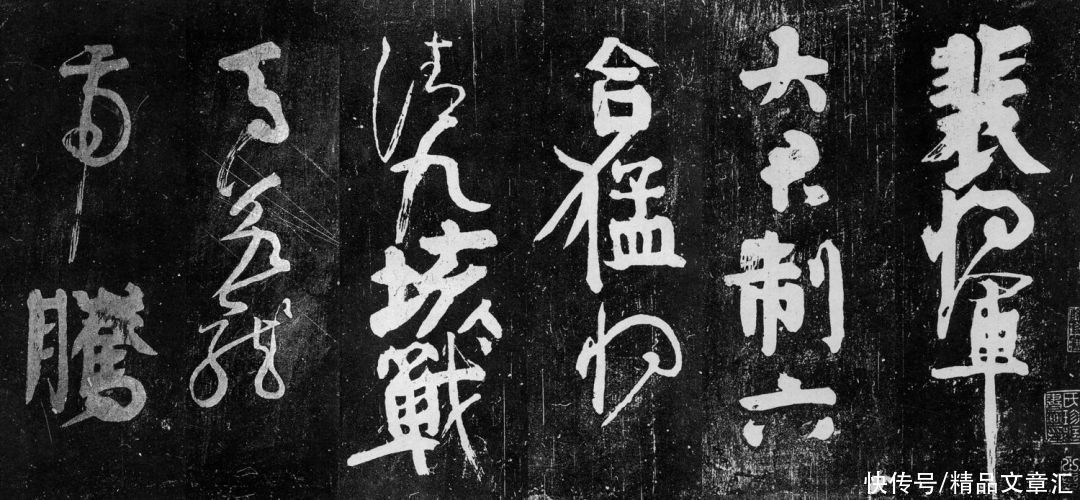 裴將軍
大君制六
合猛將
清九垓戰
馬若龍
虎騰
快传号/精品文章汇